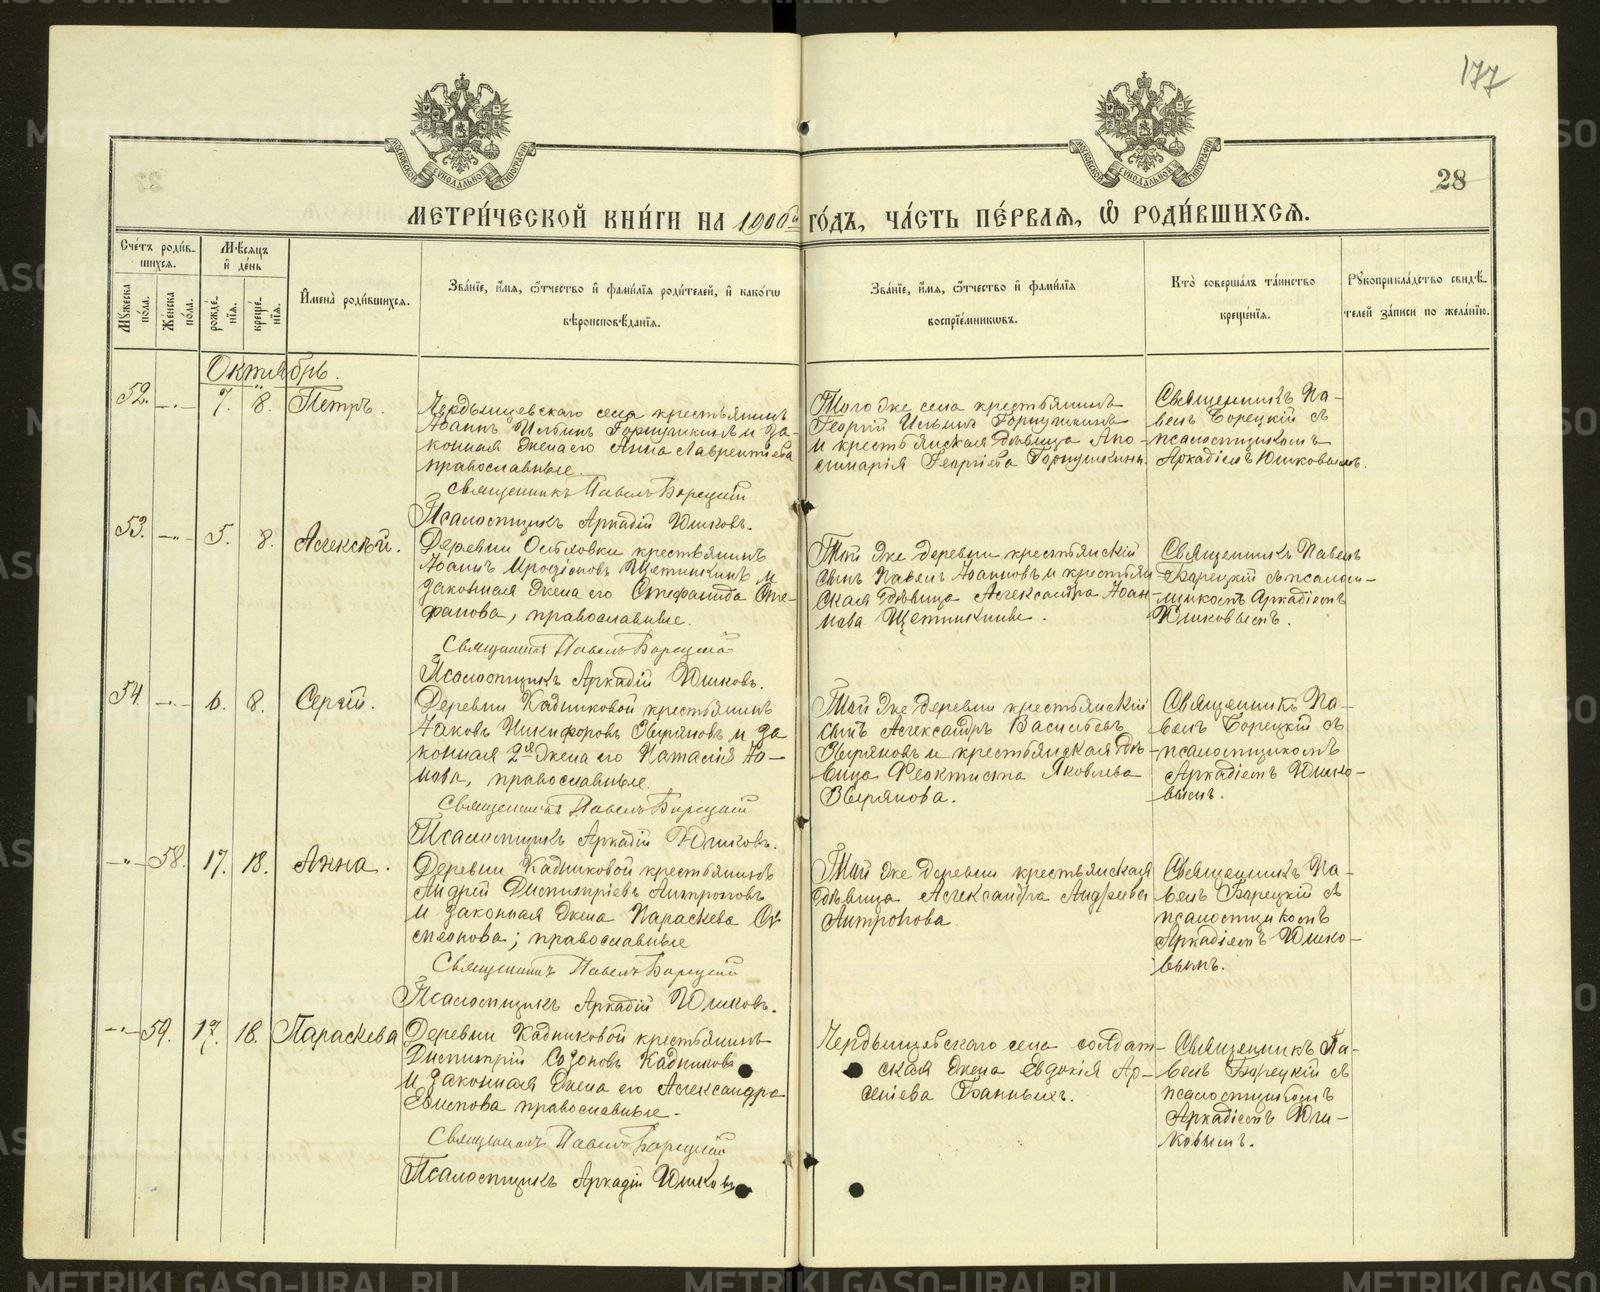 177
МОСКОВСКОЙ СѴНОДАЛЬНОЙ ТИПОГРАФІИ
МОСКОВСКОЙ СѴНОДАЛЬНОЙ ТИПОГРАФІИ
28
МЕТРИ́ЧЕСКОЙ КНИ́ГИ НА 1900й ГО́ДЪ, ЧА́СТЬ ПЕ́РВАѦ, Ѽ РОДИ́ВШИХСѦ.
Сче́тъ роди́в-
шихсѧ.
Му́жеска по́ла.
Же́нска по́ла.
Мѣ́сѧцъ
и҆ де́нь
рожде́-
нїѧ.
креще́-
нїѧ.
И҆мена̀ роди́вшихсѧ.
Зва́нїе, и҆́мѧ, ѻ҆́тчество и҆ фами́лїѧ роди́телей, и҆ како́гѡ
вѣроисповѣ́данїѧ.
Зва́нїе, и҆́мѧ, ѻ҆́тчество и҆ фами́лїѧ
воспрїе́мникѡвъ.
Кто̀ соверша́лъ та́инство
креще́нїѧ.
Рꙋкоприкла́дство свидѣ́-
телей за́писи по жела́нїю.
Октябрь.
52. 7. 8. Петръ.
Чердынцевскаго села крестьянинъ
Іоаннъ Ильинъ Горшушкинъ и за-
конная жена его Анна Лаврентіева
православные.
Священникъ Павелъ Борецкій
Псаломщикъ Аркадій Юшковъ.
Того же села крестьянинъ
Георгій Ильинъ
и крестьянская дѣвица Апо-
линарія Георгіева
Священникъ Па-
велъ Борецкій съ
псаломщикомъ
Аркадіемъ Юшковымъ.
53. 5. 8. Алексѣй.
Деревни крестьянинъ
Іоаннъ Щетинкинъ и
законная жена его Стефанида Сте-
фанова, православные.
Священникъ Павелъ Борецкій
Псаломщикъ Аркадій Юшковъ.
Той же деревни крестьянскій
сынъ Павелъ Іоанновъ и крестьян-
ская дѣвица Александра Іоан-
нова Щетинкины.
Священникъ Павелъ
Борецкій съ псалом-
щикомъ Аркадіемъ
Юшковымъ.
54. 6. 8. Сергій.
Деревни Кадниковой крестьянинъ
Іаковъ Никифоровъ Звѣряновъ и за
конная 2я жена его Наталія Іо-
нова, православные.
Священникъ Павелъ Борецкій
Псаломщикъ Аркадій Юшковъ.
Той же деревни крестьянскій
сынъ Александръ Васильевъ
Звѣряновъ и крестьянская дѣ-
вица Феоктиста Яковлева
Звѣрянова.
Священникъ Па-
велъ Борецкій съ
псаломщикомъ
Аркадіемъ Юшко-
вымъ.
58. 17. 18. Анна.
Деревни Кадниковой крестьянинъ
Андрей Димитріевъ Антроповъ
и законная жена Параскева Си
меонова; православные
Священникъ Павелъ Борецкій
Псаломщикъ Аркадій Юшковъ.
Той же деревни крестьянская
дѣвица Александра Андреева
Антропова
Священникъ Па-
велъ Борецкій съ
псаломщикомъ
Аркадіемъ Юшко-
вымъ.
59. 17. 18. Параскева
Деревни Кадниковой крестьянинъ
Димитрій Созоновъ Кадниковъ
и законная жена его Александра
православные.
Священникъ Павелъ Борецкій
Псаломщикъ Аркадій Юшковъ
Чердынцевскаго села солдат-
ская жена Евдокія Ар-
сеніева Банныхъ.
Священникъ Па-
велъ Борецкій съ
псаломщикомъ
Аркадіемъ Юш-
ковымъ.
METRIKI.GASO-URAL.RU